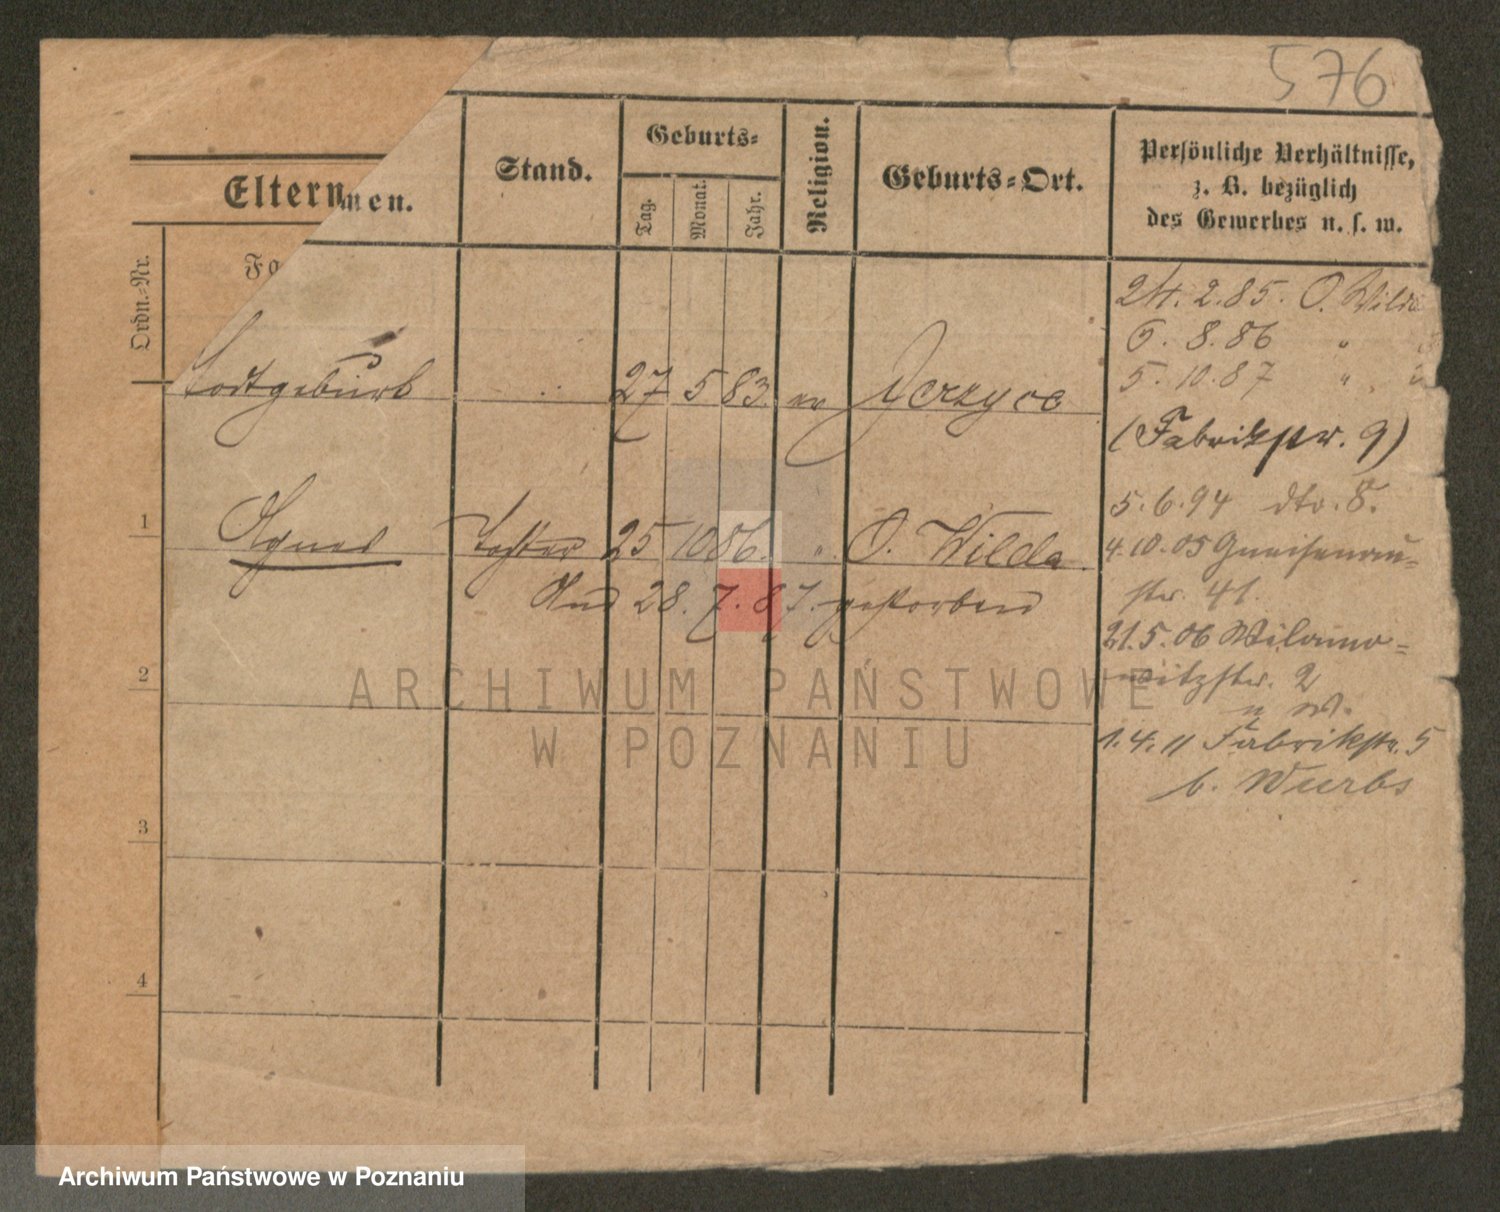 576
Eltern
men.
Stand.
Geburts=
Tag.
Monat.
Jahr.
Religion.
Geburts=Ort.
Persönliche Verhältnisse,
z. B. bezüglich
des Gewerbes u. s. w.
Ordn.=Nr.
Fa
24. 2. 85. O. Wilda
6. 8. 86 "
5. 10. 87 "
Todtgeburt 27 5 83 ev Jerzyce
(Fabrikstr. 9)
5. 6. 94 dto. 8.
1 Agnes Tochter 25 10 86. " O. Wilda
4. 10. 05 Gneisenau=
str. 41.
28. 7. 87. gestorben
21. 5. 06 Wilamo=
witzstr. 2
2
1. 4. 11 Fabrikstr. 5
b. Wurbs
3
4
ARCHIWUM PAŃSTWOWE
W POZNANIU
Archiwum Państwowe w Poznaniu